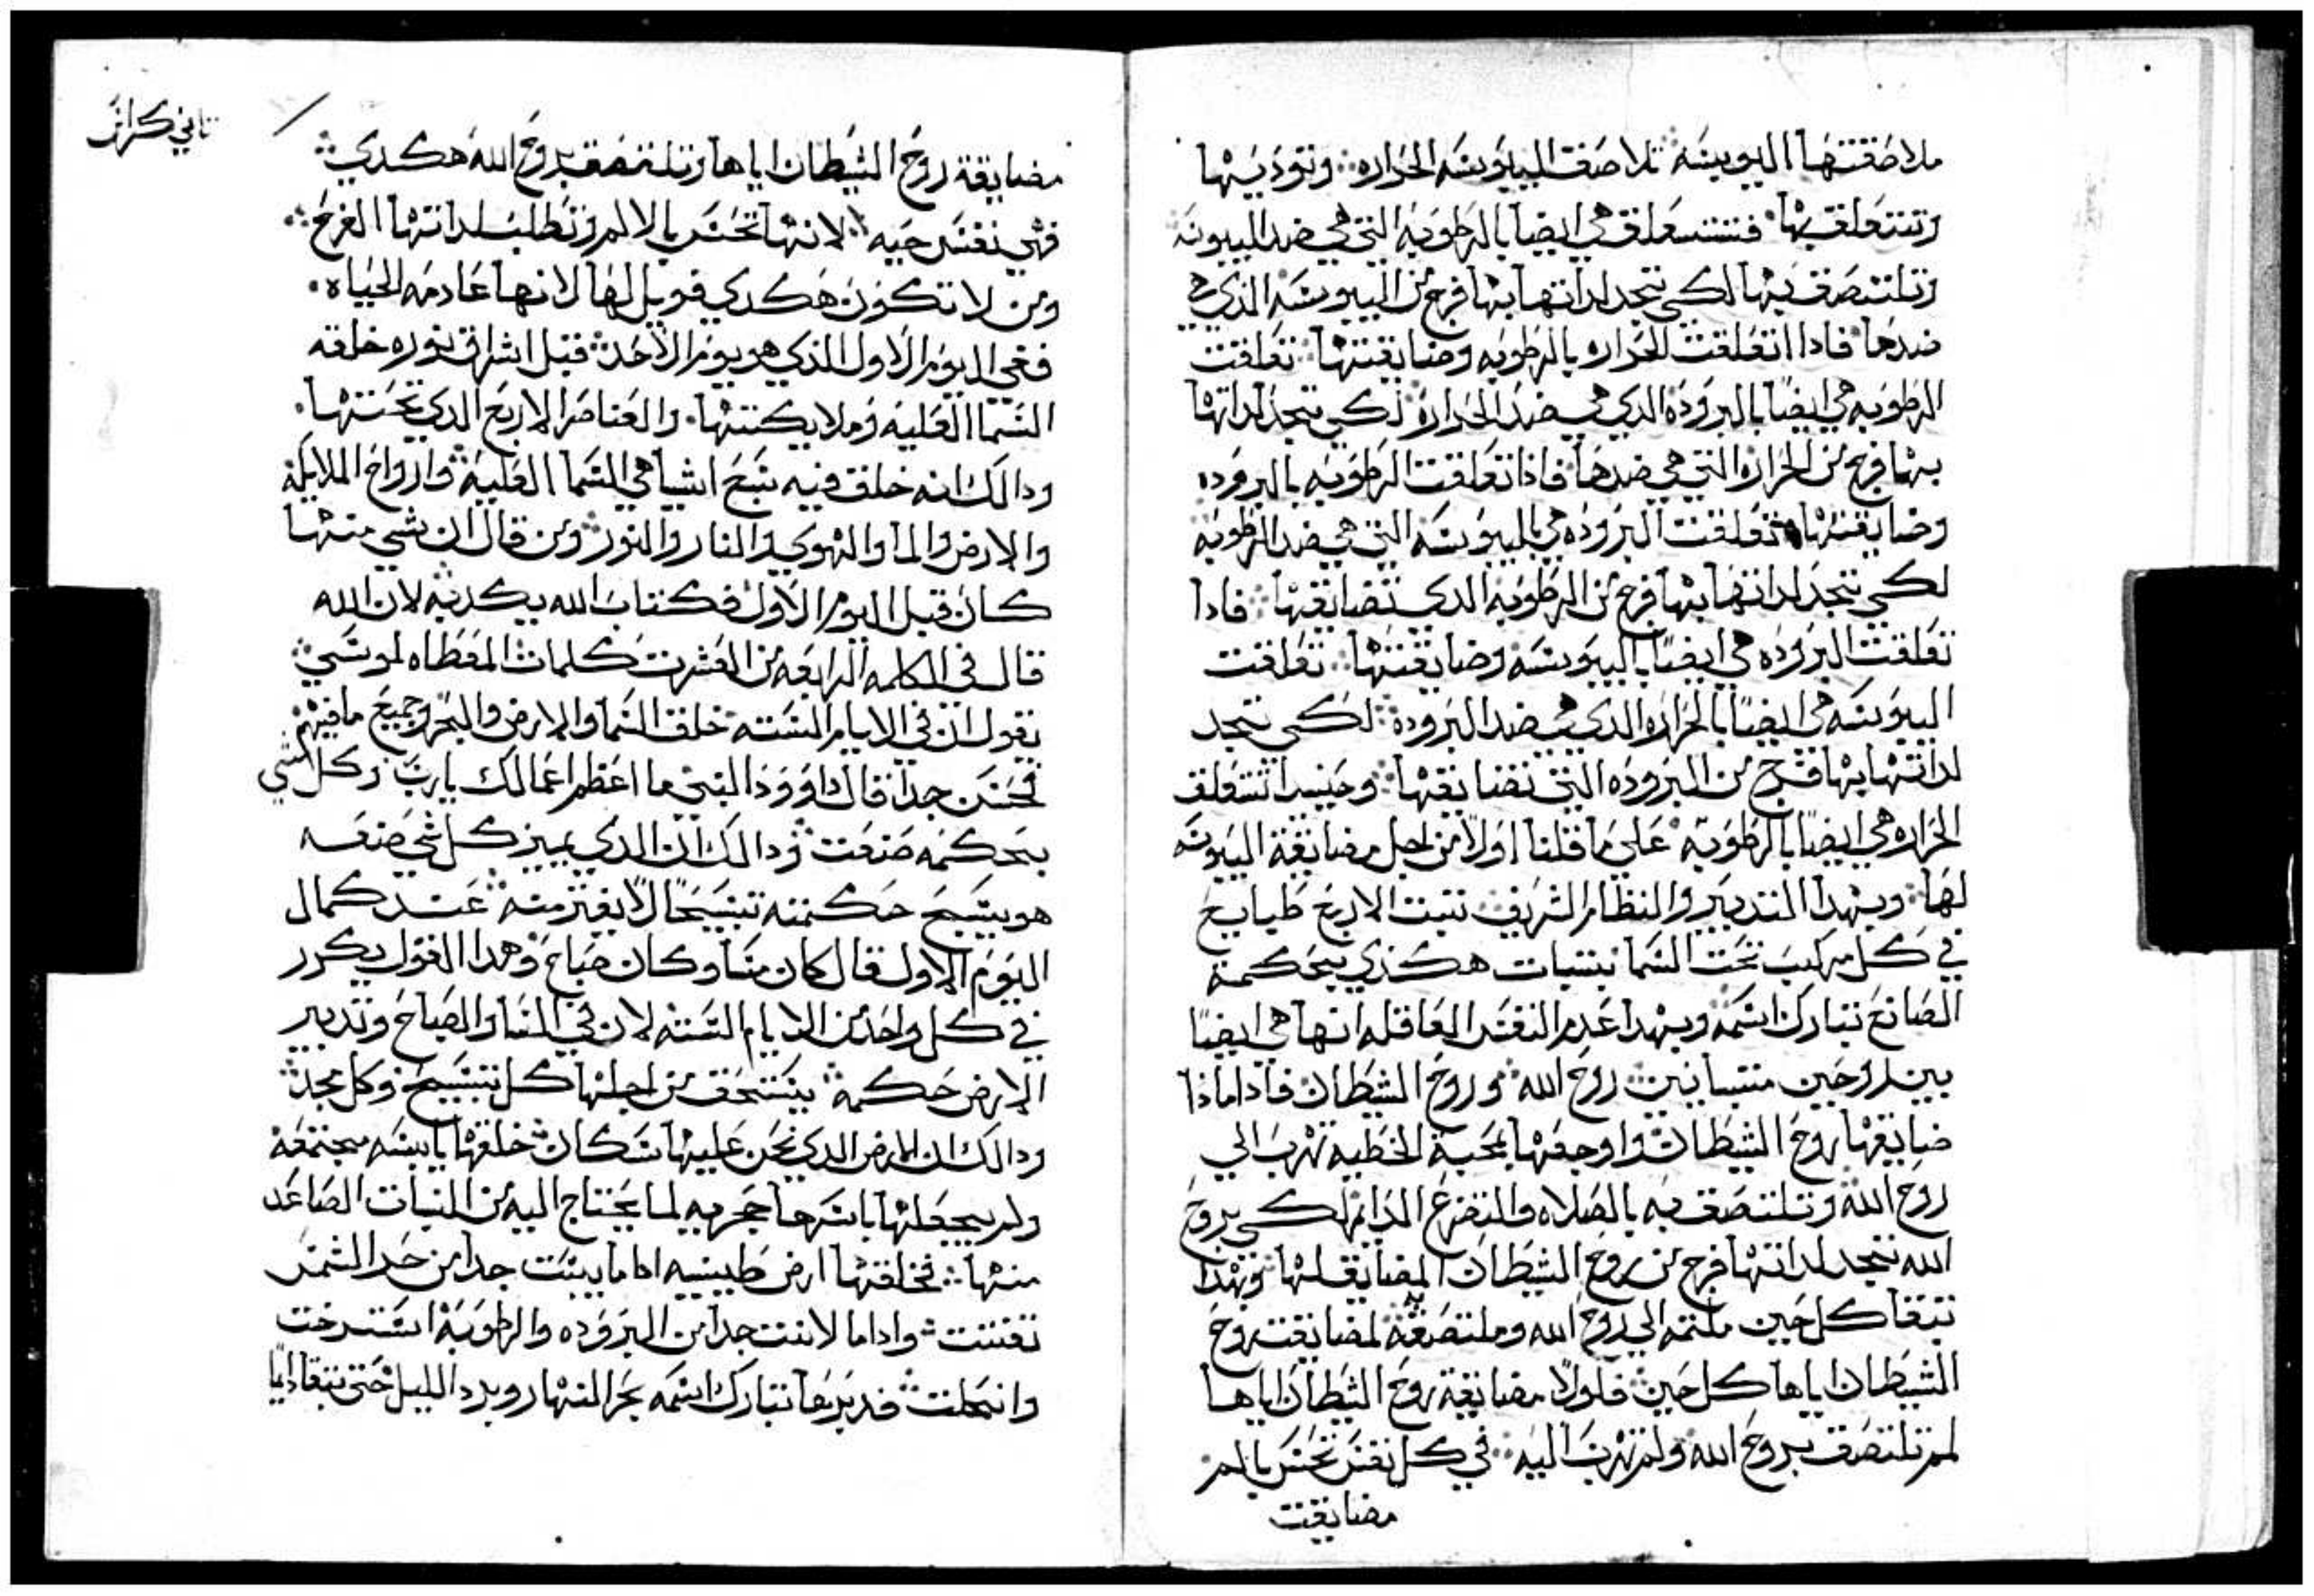 ملاصقتها اليبوسه تلاصقت اليبوسه الحراره وتوديها
وتتعلق بها فتتعلق هي ايضا بالرطوبه التي هي ضد اليبوسه
وتلتصق بها لكي تجد لداتها بها فرج من اليبوسه الذي هي
ضدها فادا اتعلقت الحراره بالرطوبه وضايقتها تعلقت
الرطوبه هي ايضًا بالبروده الدي هي ضد الحراره لكي تجد لداتها
بها فرج من الحراره التي هي ضدها فاذا تعلقت الرطوبه بالبروده
وضايقتها تعلقت البروده هي باليبوسه التي هي ضد الرطوبه
لكي تجد لداتها بها فرج من الرطوبه الدي تضايقها فادا
تعلقت البروده هي ايضًا باليبوسه وضايقتها تعلقت
اليبوسه هي ايضًا بالحراره الدي هي ضد البروده لكي تجد
لداتها بها فرج من البروده التي تضايقها وحينيدا تتعلق
الحراره هي ايضًا بالرطوبه علي ما قلنا اولًا من اجل مضايقة اليبوسه
لها وبهدا التدبير والنظام الشريف تتبت الاربع طبايع
في كل مركب تحت السما بتبات هكذي بحكمة
الصانع تبارك اسمه وبهدا علم النفس العاقله انها هي ايضًا
بين روحين متباينين روح الله وروح الشيطان فادا ماذا
ضايقها روح الشيطان واوجعها بمحبة الخطيه تهرب الي
روح الله وتلتصق به بالصلاه والتضرع الدايم لكي بروح
الله تجد لداتها فرج من روح الشيطان المضايق لها وبهدا
تبقا كل حين ملتمه الي روح الله وملتصقه لمضايقت روح
الشيطان اياها كل حين فلولا مضايقة روح الشيطان اياها
لم تلتصق بروح الله ولم تهرب اليه في كل نفس تحس بالم
مضايقت
تاني كراس
مضايقة روح الشيطان اياها وتلتصق بروح الله هكدي
فهي نفس حيه لانها تحس بالالم وتطلب لداتها الفرح
ومن لا تكون هكدي فويل لها لانها عادمه الحياه
ففي اليوم الاول الذي هو يوم الاحد قبل اشراق نوره خلقه
السما العليه وملايكتها والعناصر الاربع الدي تحتها
ودالك انه خلق فيه سبع اشيا هي السما العليه وارواح الملايكه
والارض والما والهوي والنار والنور ومن قال ان شي منها
كان قبل اليوم الاول فكتاب الله يكدبه لان الله
قال في الكلمه الرابعه من العشرت كلمات المعطاه لموسي
يقول ان في الايام السته خلق السما والارض والبحر وجميع ما فيهم
فحسن جدا قال داوود النبي ما اعظم اعمالك يارب وكل شي
بحكمه صنعت ودالك ان الدي يميز كل شي صنعه
هو يسبح حكمته تسبيحًا لا يفتر منه عند كمال
اليوم الاول قال كان مسا وكان صباح وهدا القول يكرر
في كل واحد من الايام السته لان في المسا والصباح وتدبير
الارض حكمه يستحق من اجلها كل تسبيح وكل مجد
ودالك ان الارض الدي نحن عليها سكان خلقها يابسه مجتمعه
ولم يجعلها باسرها حجريه لما يحتاج اليه من النبات الصاعد
منها فخلقها ارض طينيه اداما يبست جدا من حر الشمس
تفتتت واداما لانت جدا من البروده والرطوبه استرخت
وانحلت فدبرها تبارك اسمه بحر النهار وبرد الليل حتي تبقا دايمًا